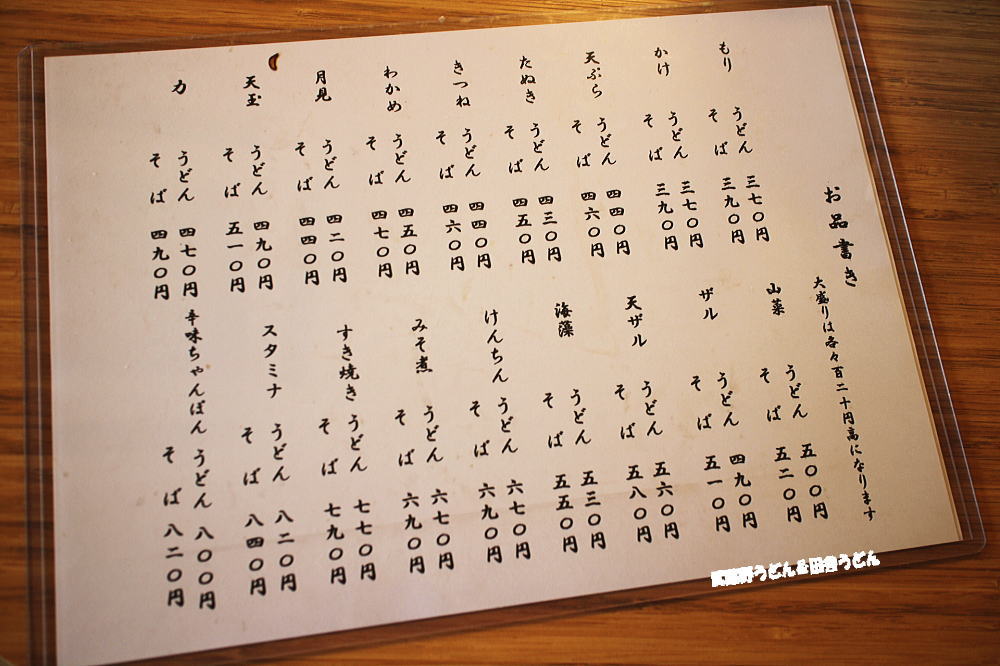 お品書き
大盛りは各々百二十円高になります
もり
うどん 三七〇円
そば 三九〇円
かけ
うどん 三七〇円
そば 三九〇円
天ぷら
うどん 四四〇円
そば 四六〇円
たぬき
うどん 四三〇円
そば 四五〇円
きつね
うどん 四四〇円
そば 四六〇円
わかめ
うどん 四五〇円
そば 四七〇円
月見
うどん 四二〇円
そば 四四〇円
天玉
うどん 四九〇円
そば 五一〇円
力
うどん 四七〇円
そば 四九〇円
山菜
うどん 五〇〇円
そば 五二〇円
ザル
うどん 四九〇円
そば 五一〇円
天ザル
うどん 五六〇円
そば 五八〇円
海藻
うどん 五三〇円
そば 五五〇円
けんちん
うどん 六七〇円
そば 六九〇円
みそ煮
うどん 六七〇円
そば 六九〇円
すき焼き
うどん 七七〇円
そば 七九〇円
スタミナ
うどん 八二〇円
そば 八四〇円
辛味ちゃんぽん
うどん 八〇〇円
そば 八二〇円
武蔵野うどん&田舎うどん